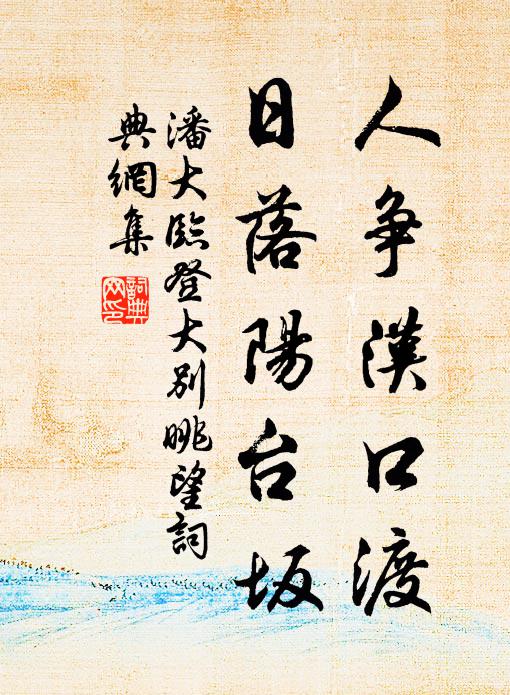 人争漢口渡
日落陽台坂
潘大臨登大別眺望詞
典網集
詞典
网印